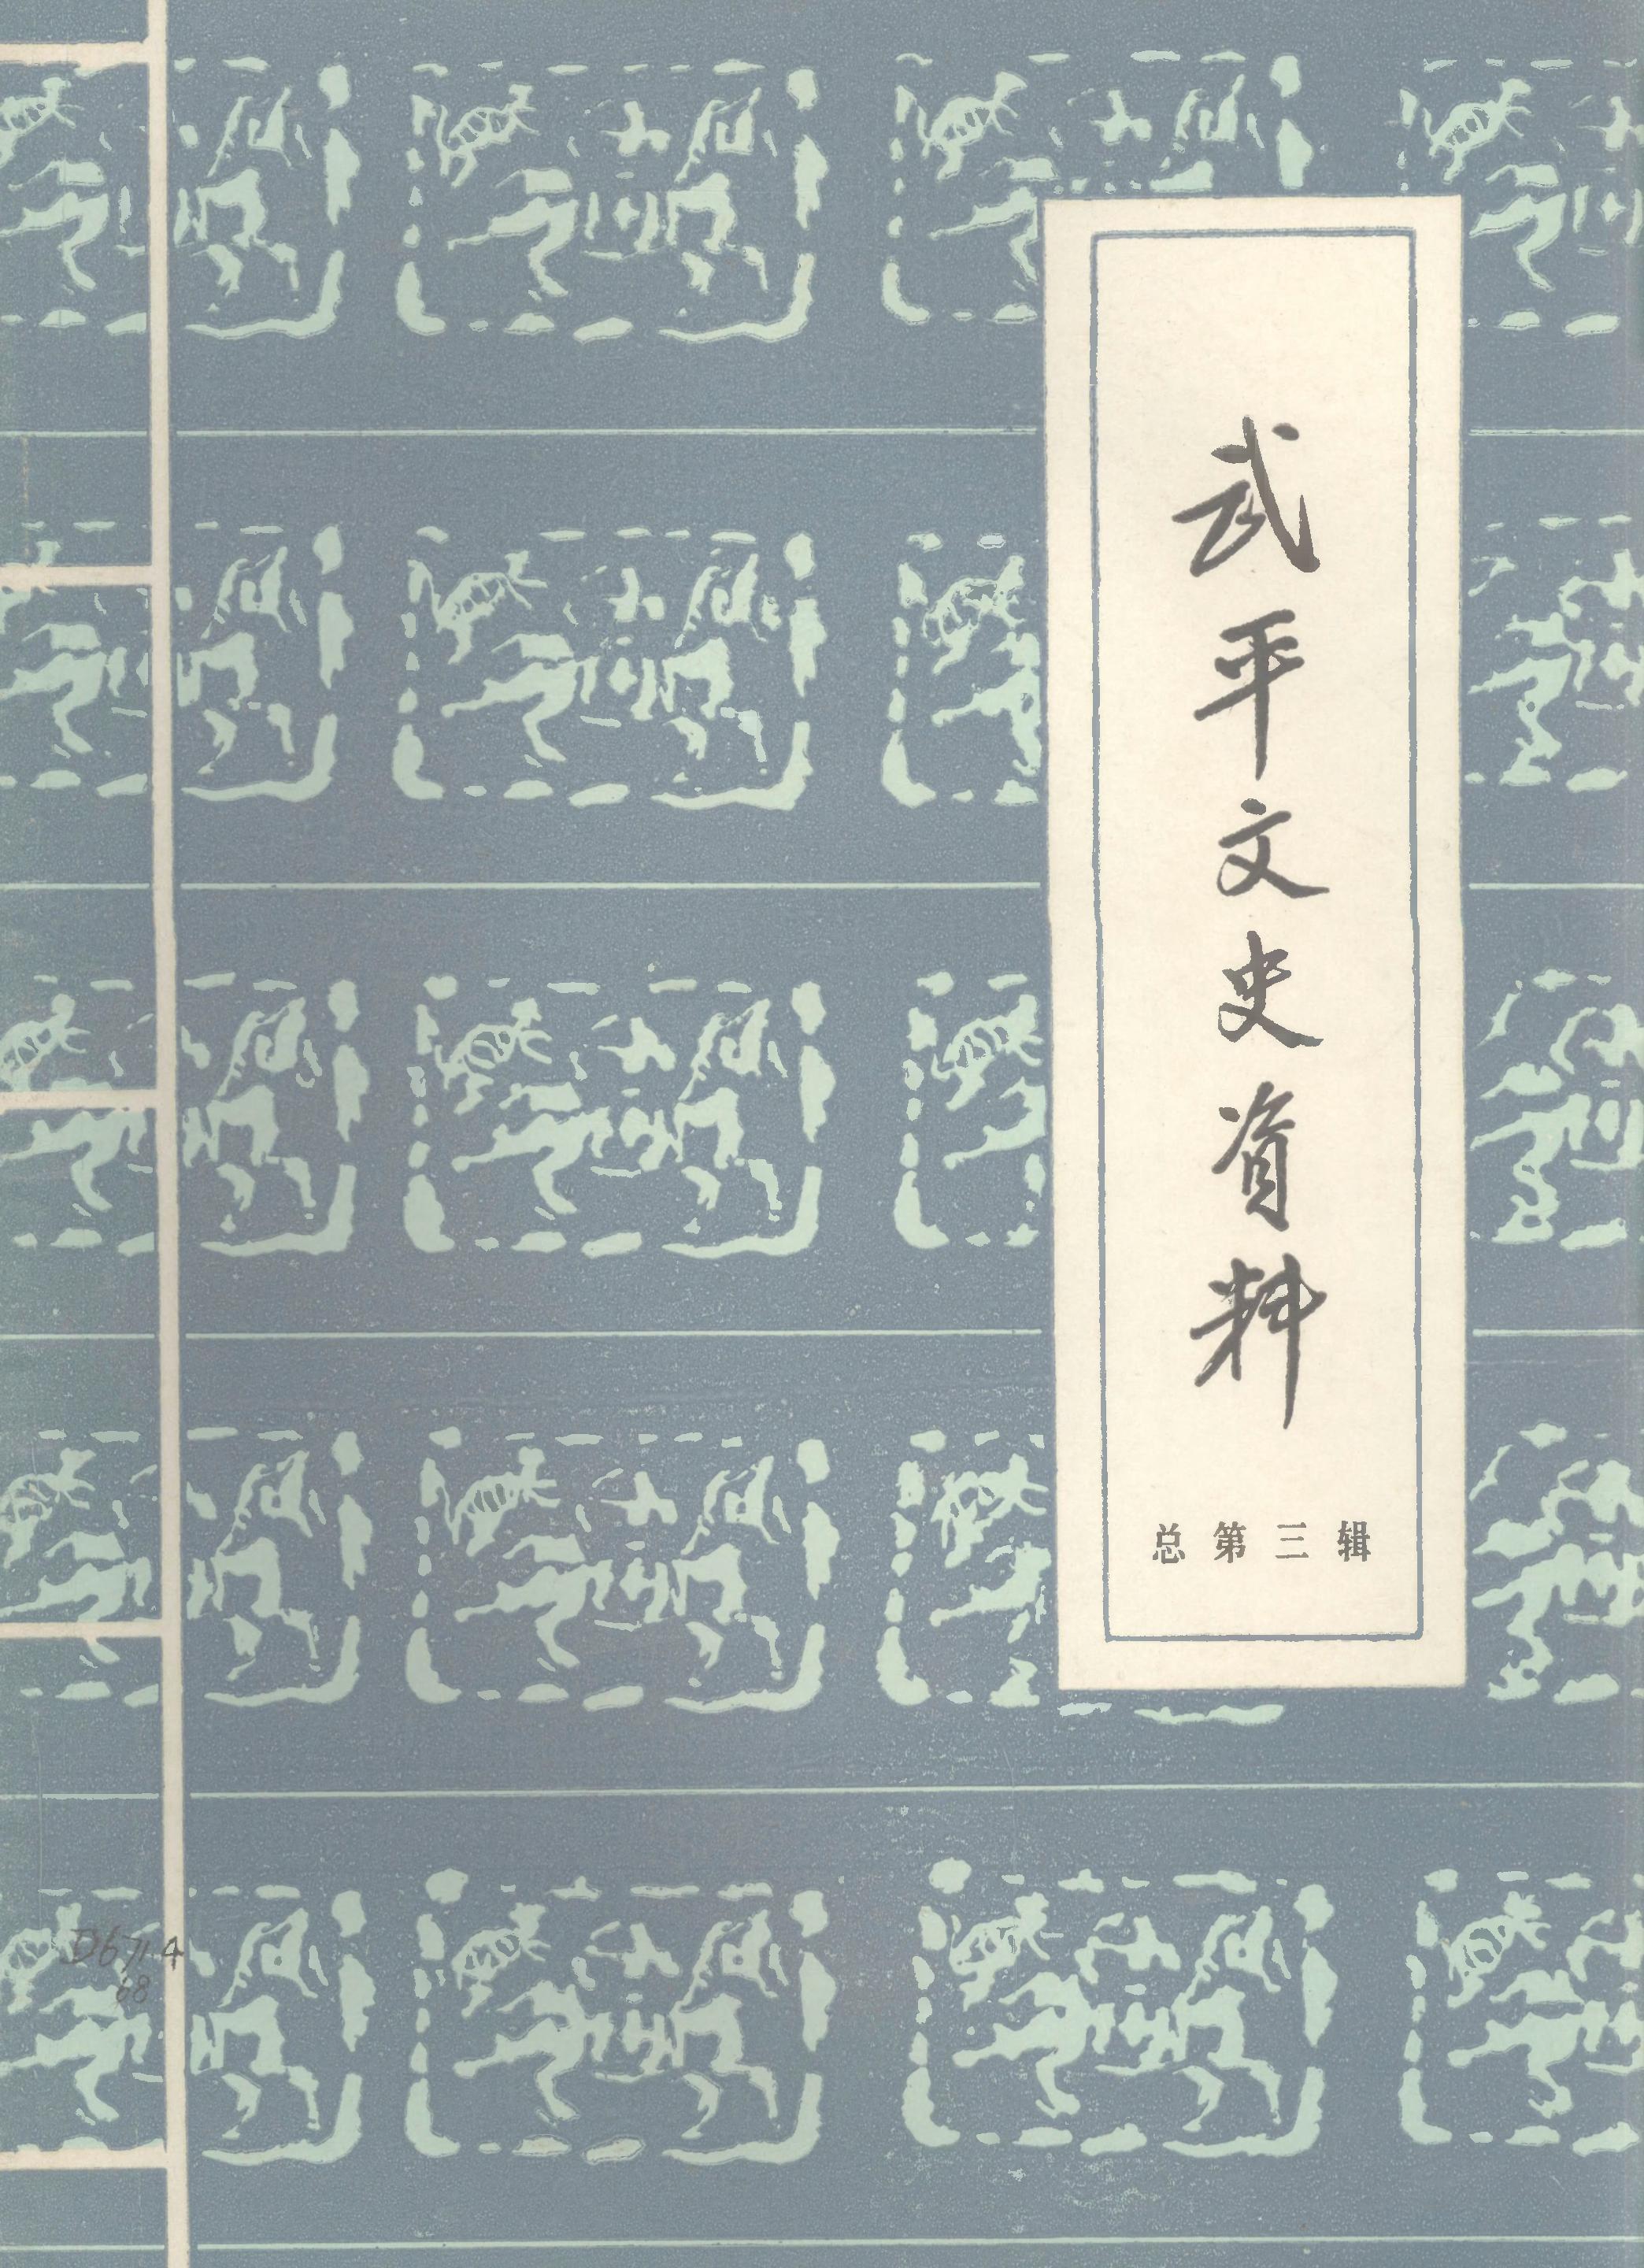 武平文史資料
总第三辑
D671.4
68